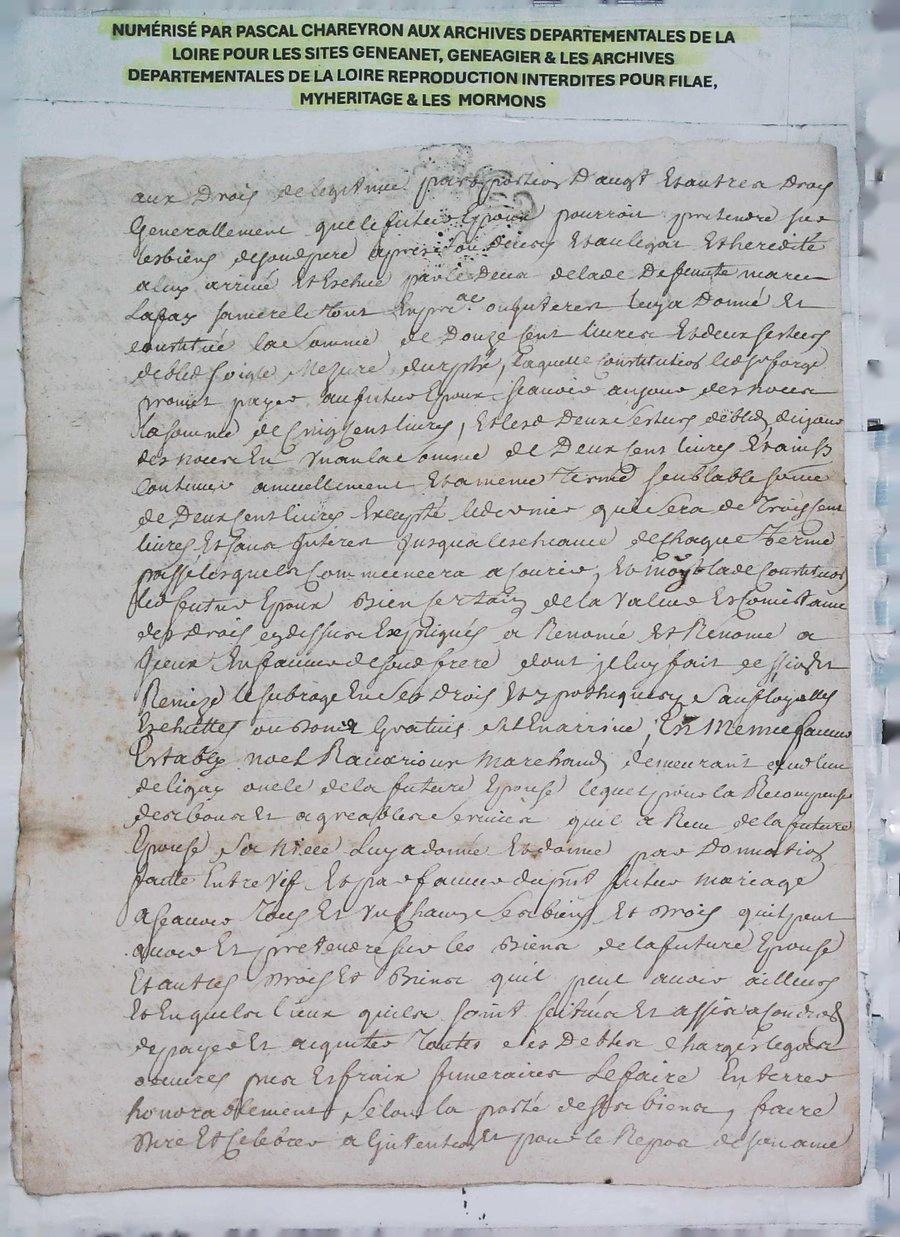 NUMÉRISÉ PAR PASCAL CHAREYRON AUX ARCHIVES DEPARTEMENTALES DE LA
LOIRE POUR LES SITES GENEANET, GENEAGIER & LES ARCHIVES
DEPARTEMENTALES DE LA LOIRE REPRODUCTION INTERDITES POUR FILAE,
MYHERITAGE & LES MORMONS
aux Drois de legitime part portion D'augt Et autres Drois
Generallement que le futur Epoux pourroit pretendre sur
les biens de sond pere apres son deces Et au legat Et heredité
a luy arrivé Et Escheue par le Deces de lade Deffunte marie
Lafay sa mere le tout En pral ou Interest luy a Donné Et
constitué la somme de Douze Cent livres Et deux sestiers
de bled soigle Mezure durphé, laquelle Constitution led
promet payer au futur Epoux scavoir au jour des noces
la somme de Cinq Cent livres, Et les Deux sestiers de bled, du jour
des noces En un an la somme de Deux Cent livres Et ainsy
Continuer annuellement Et a meme Terme semblable some
de Deux Cent livres Excepté le dernier qui sera de Trois Cent
livres Et sans Interest Jusqua lescheance de chaque Terme
passé lesquels commencera a courir, Et moyt lade Constitution
led futur Epoux Bien certain de la value Et Consistance
des Drois cy dessus Expliqués a Renoncé Et Renonce a
Iceux En faveur de sond frere dont il luy fait cession Et
Remize le subroge En ses drois Et ypotheques, sauf loyalles
Escheuttes ou Donne Gratuis sil En arrive; En Meme faveur
Estably noel Ravarioux Marchand demeurant
de ligay oncle de la future Epouse lequel pour la Recompense
des bons Et agreables services quil a Receu de la future
Epouse sa niece luy a donné Et donne par Donnation
faitte Entre Vif Et par faveur du pnt futur mariage
a scavoir Tous Et Un Chacun ses biens Et Drois quil peut
avoir Et pretendre sur les Biens de la future Epouse
Et autres Drois Et Biens quil peut avoir ailleurs
Et En quels lieux quils soint scitués Et assis a Condion
de payer Et aquiter Toutes ses Debtes Charges legats
œuvres pies Et frais funeraires Le faire Enterrer
honorablement selon la porté de ses biens, faire
Dire Et Celebrer a Lintention Et pour le Repos de son ame